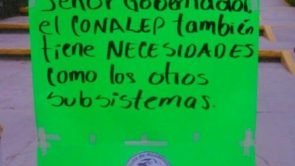 Señor Gobernador,
el CONALEP también
tiene NECESIDADES
como los otros
subsistemas.